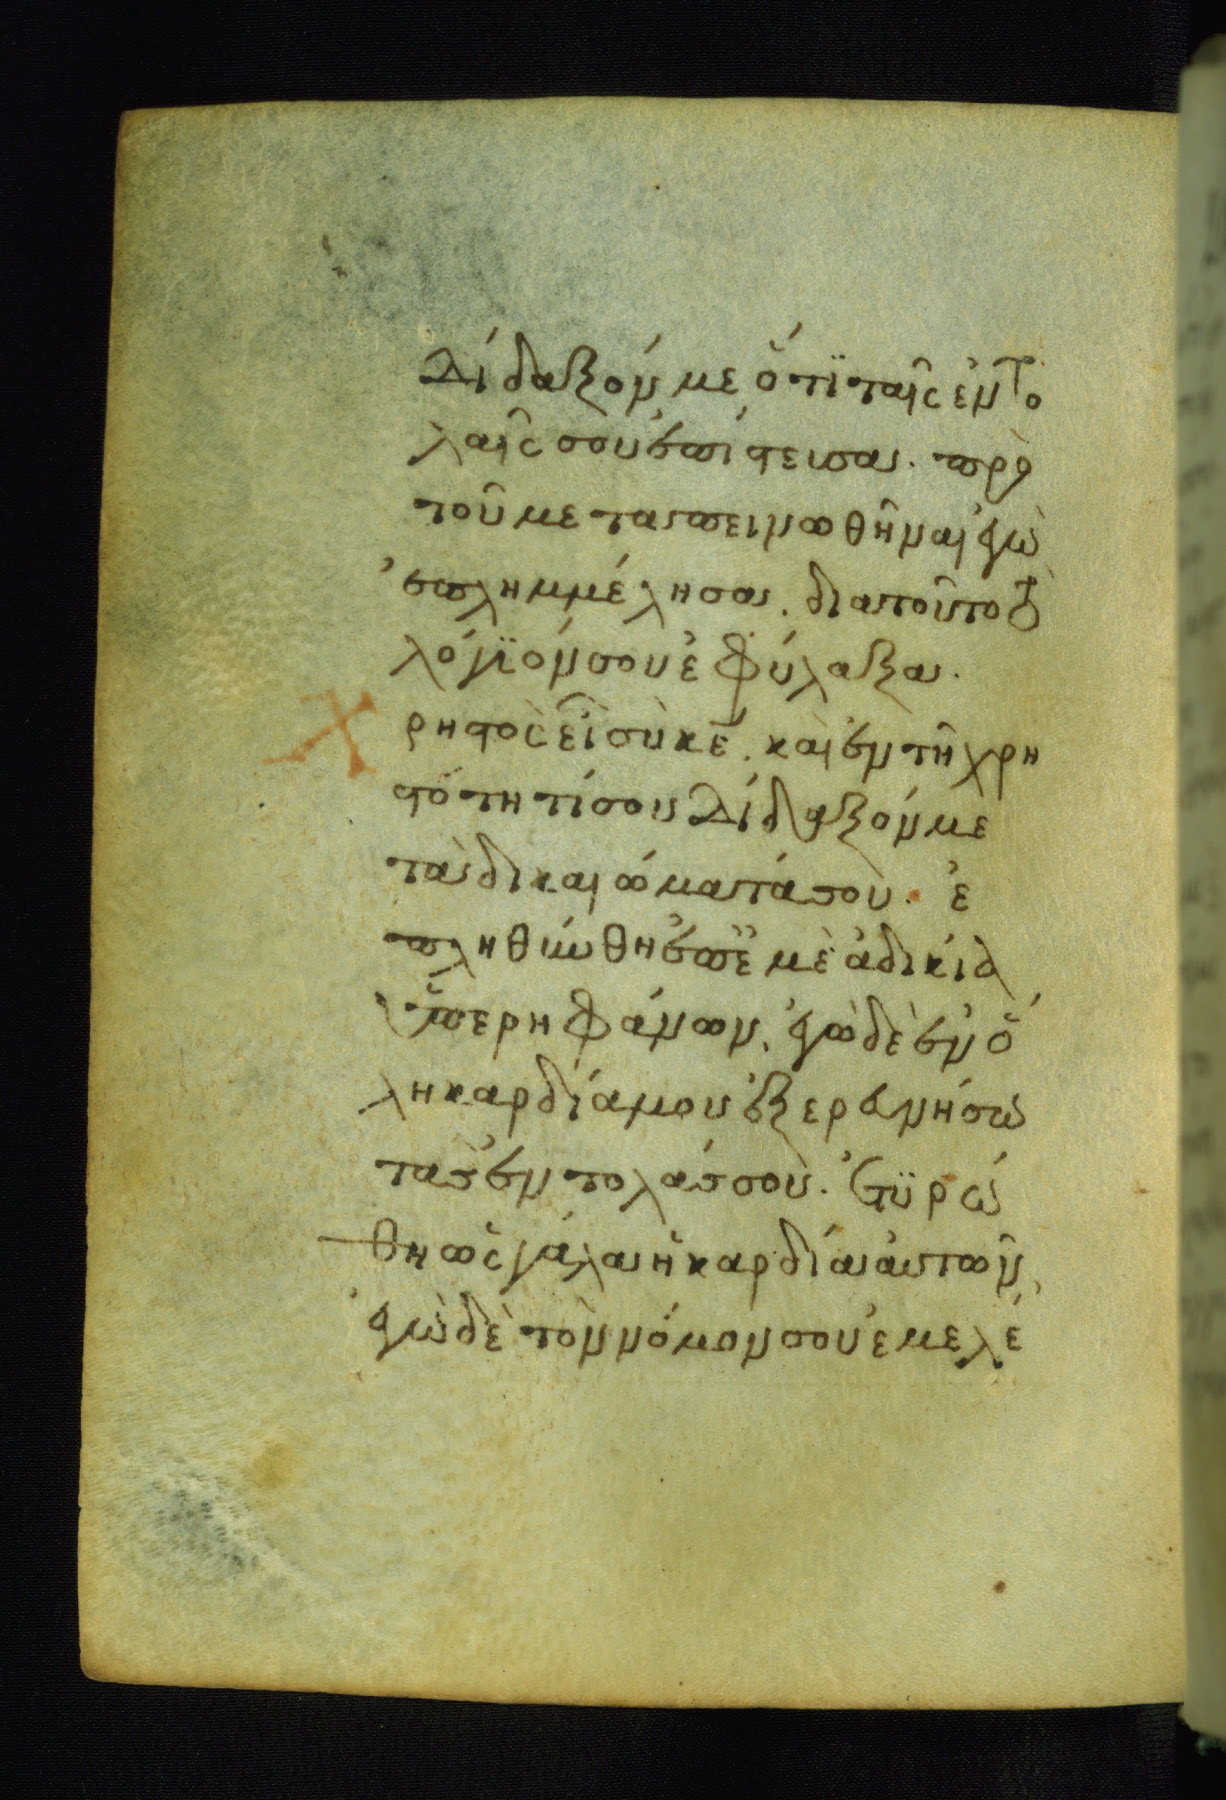 Δίδαξόν με ὅτι ταῖς ἐντο
λαῖς σου ἐπίστευσα. πρὸ
τοῦ με ταπεινωθῆναι ἐγὼ
ἐπλημμέλησα. διατοῦτο τὸ
λόγϊόν σου ἐφύλαξα.
Χρηστὸς εἶ σὺ κε̅. καὶ ἐν τῆ χρη
στότητί σου δίδαξόν με
τὰ δικαιώματά σου. ἐ
πληθύνθη ἐπ ἐμὲ ἀδικία
ὑπερηφάνων. ἐγὼ δὲ ἐν ὅ
λη καρδία μου ἐξερευνήσω
τὰς ἐντολάς σου. ἐτϋρώ
θη ὡς γάλα ἡ καρδία αὐτῶν,
ἐγὼ δὲ τὸν νόμον σου ἐμελέ